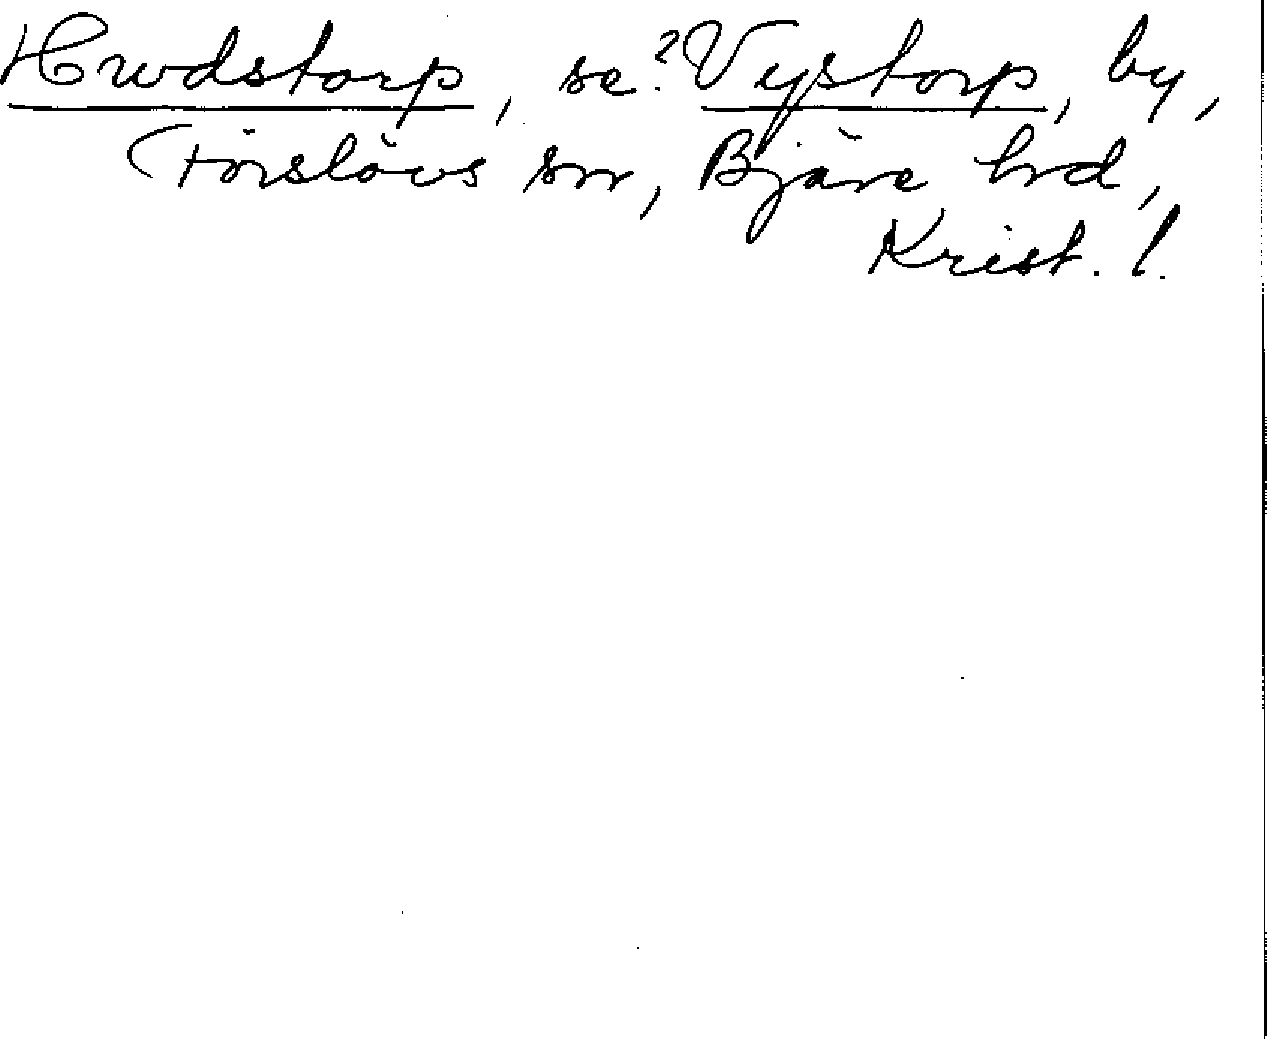 Hwdstorp, se ? Vystorp, by,
Förslövs sn, Bjäre hd,
Krist. l.